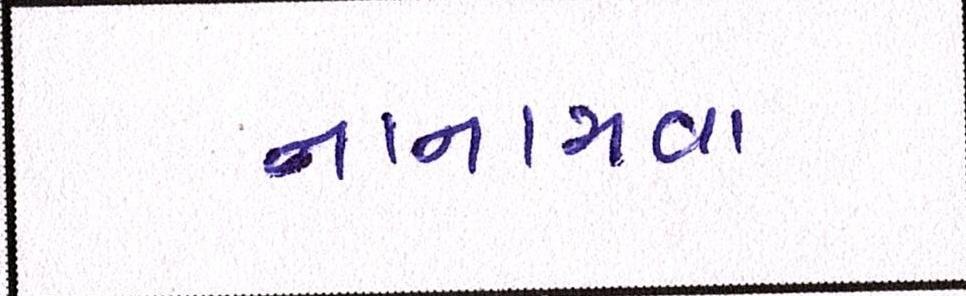 નાનામવા